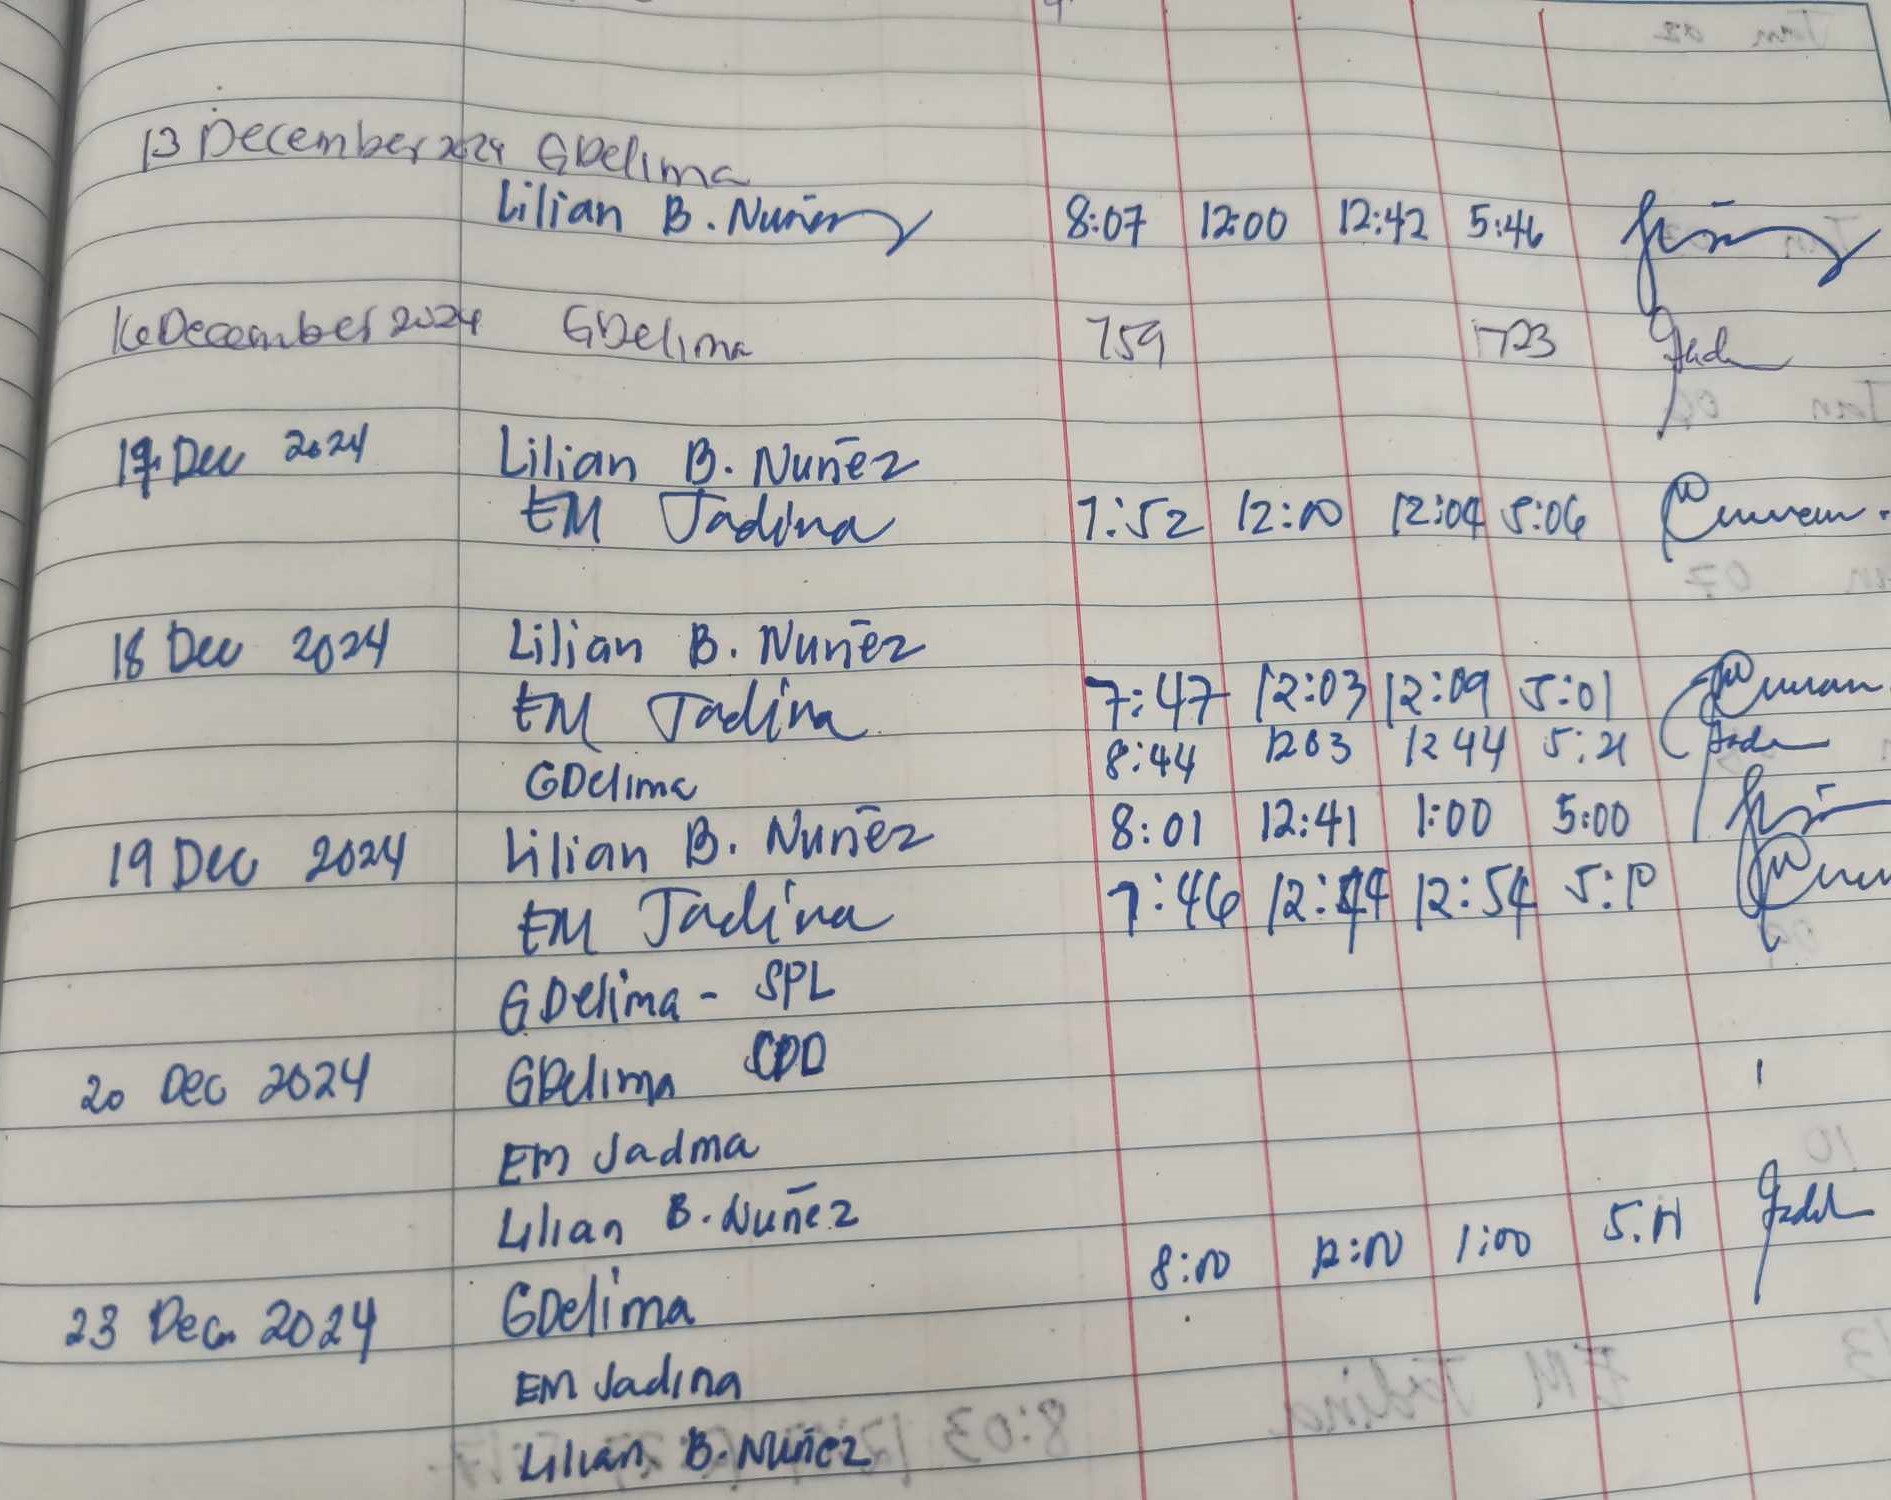 13 December 2024 GDelima
Lilian B. Nuñez 8:07 12:00 12:42 5:46
16 December 2024 GDelima 759 1723
17 Dec 2024 Lilian B. Nuñez
EM Jadina 7:52 12:00 12:04 5:06
18 Dec 2024 Lilian B. Nuñez
EM Jadina 7:47 12:03 12:09 5:01
GDelima 8:44 1203 1244 5:21
19 Dec 2024 Lilian B. Nuñez 8:01 12:41 1:00 5:00
EM Jadina 7:46 12:44 12:54 5:10
GDelima - SPL
20 Dec 2024 GDelima CDO
EM Jadina
Lilian B. Nuñez
23 Dec 2024 GDelima 8:00 12:00 1:00 5.11
EM Jadina
Lilian B. Nuñez